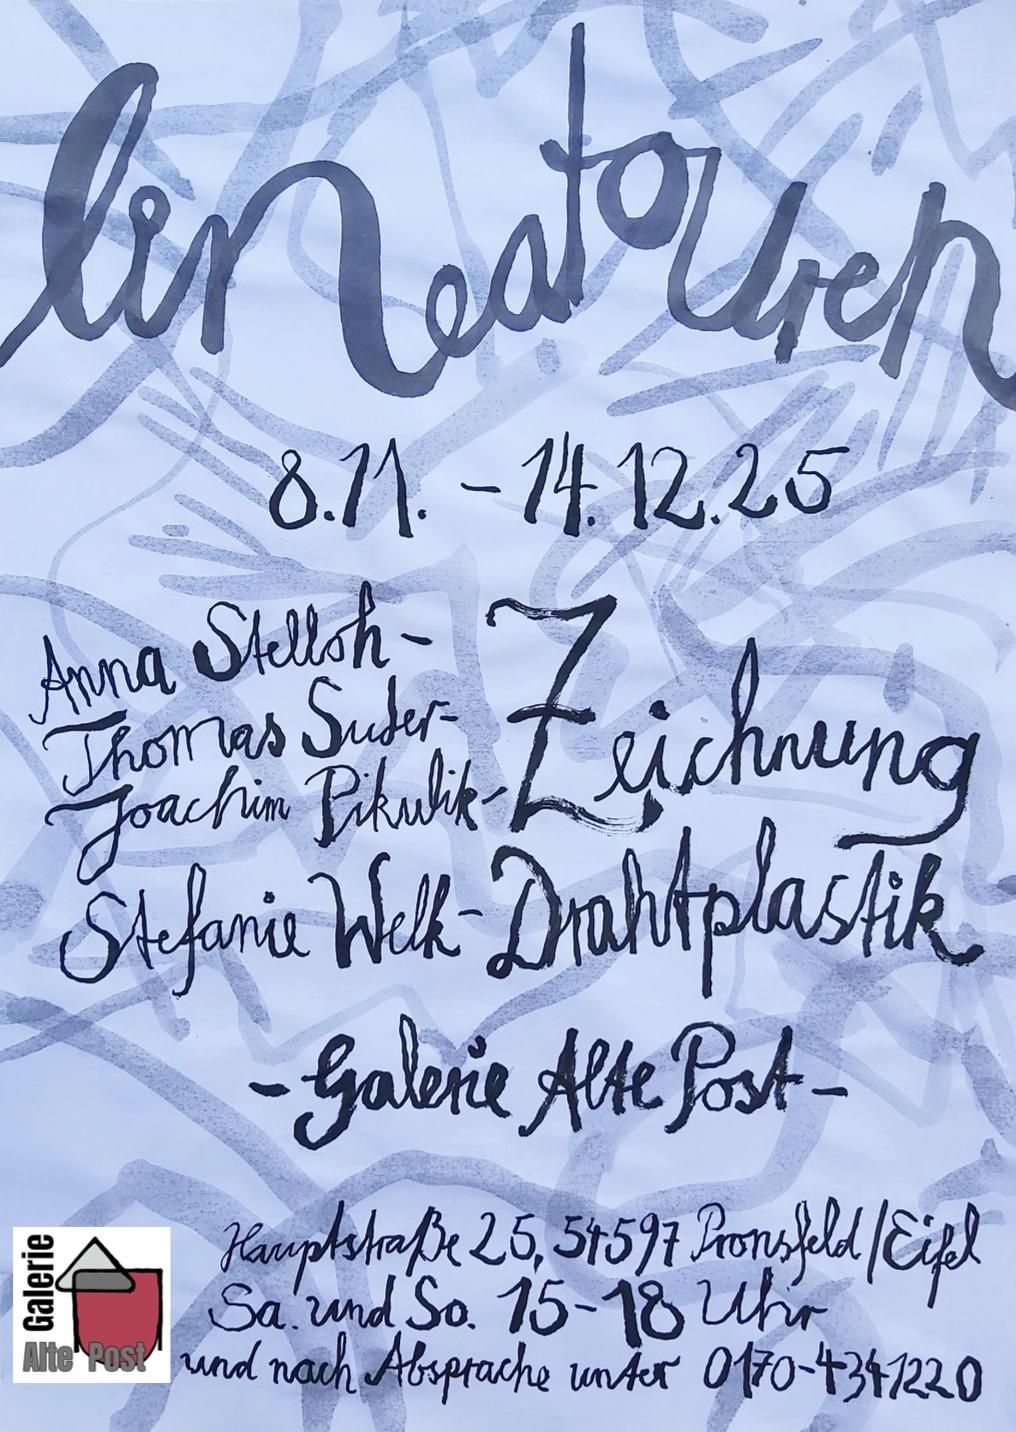 lineatouren
8.11. - 14.12.25
Anna Stelloh -
Thomas Suter -
Joachim Pikulik -
Zeichnung
Stefanie Welk - Drahtplastik
- Galerie Alte Post -
Hauptstraße 25, 54597 Pronsfeld / Eifel
Sa. und So. 15-18 Uhr
und nach Absprache unter 0170-4341220
Galerie
Alte Post